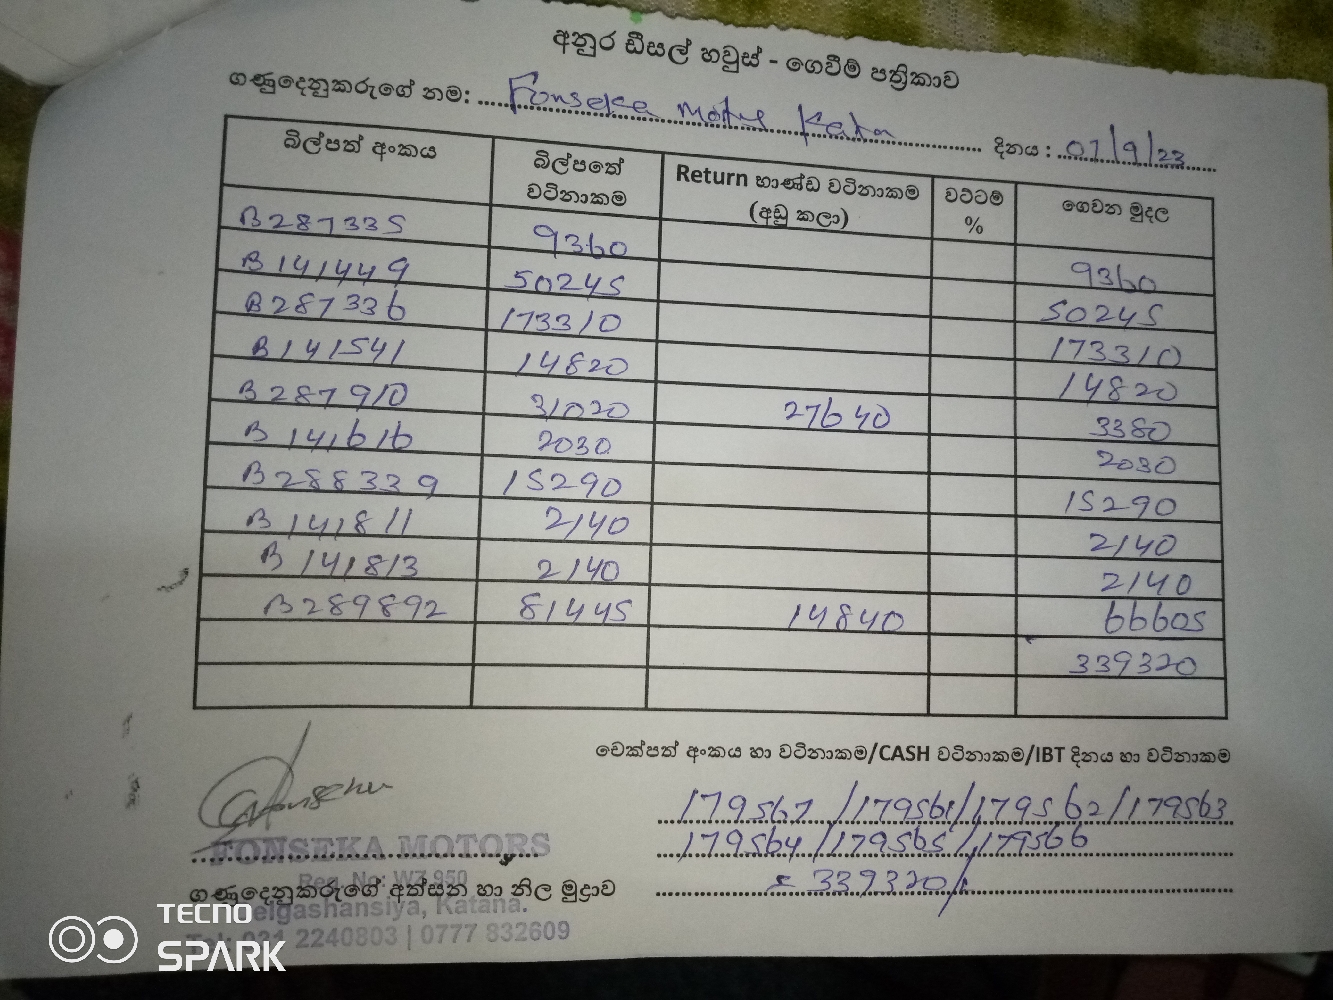 අනුර ඩීසල් හවුස් - ගෙවීම් පත්‍රිකාව
ගණුදෙනුකරුගේ නම: Fonseka Motor Katan
දිනය : 07/9/23
බිල්පත් අංකය බිල්පතේ වටිනාකම Return භාණ්ඩ වටිනාකම (අඩු කලා) වට්ටම් % ගෙවන මුදල
B287335 9360 9360
B141449 50245 50245
B287336 173310 173310
B141541 14820 14820
B287910 31020 27640 3380
B141616 2030 2030
B288339 15290 15290
B141811 2140 2140
B141813 2140 2140
B289892 81445 14840 66605
339320
චෙක්පත් අංකය හා වටිනාකම/CASH වටිනාකම/IBT දිනය හා වටිනාකම
179567 /179561/179562/179563
179564 /179565/179566
= 339320/-
FONSEKA MOTORS
Reg. No: WZ 950
ගණුදෙනුකරුගේ අත්සන හා නිල මුද්‍රාව
elgashansiya, Katana.
Tel: 031 2240803 | 0777 832609
TECNO
SPARK